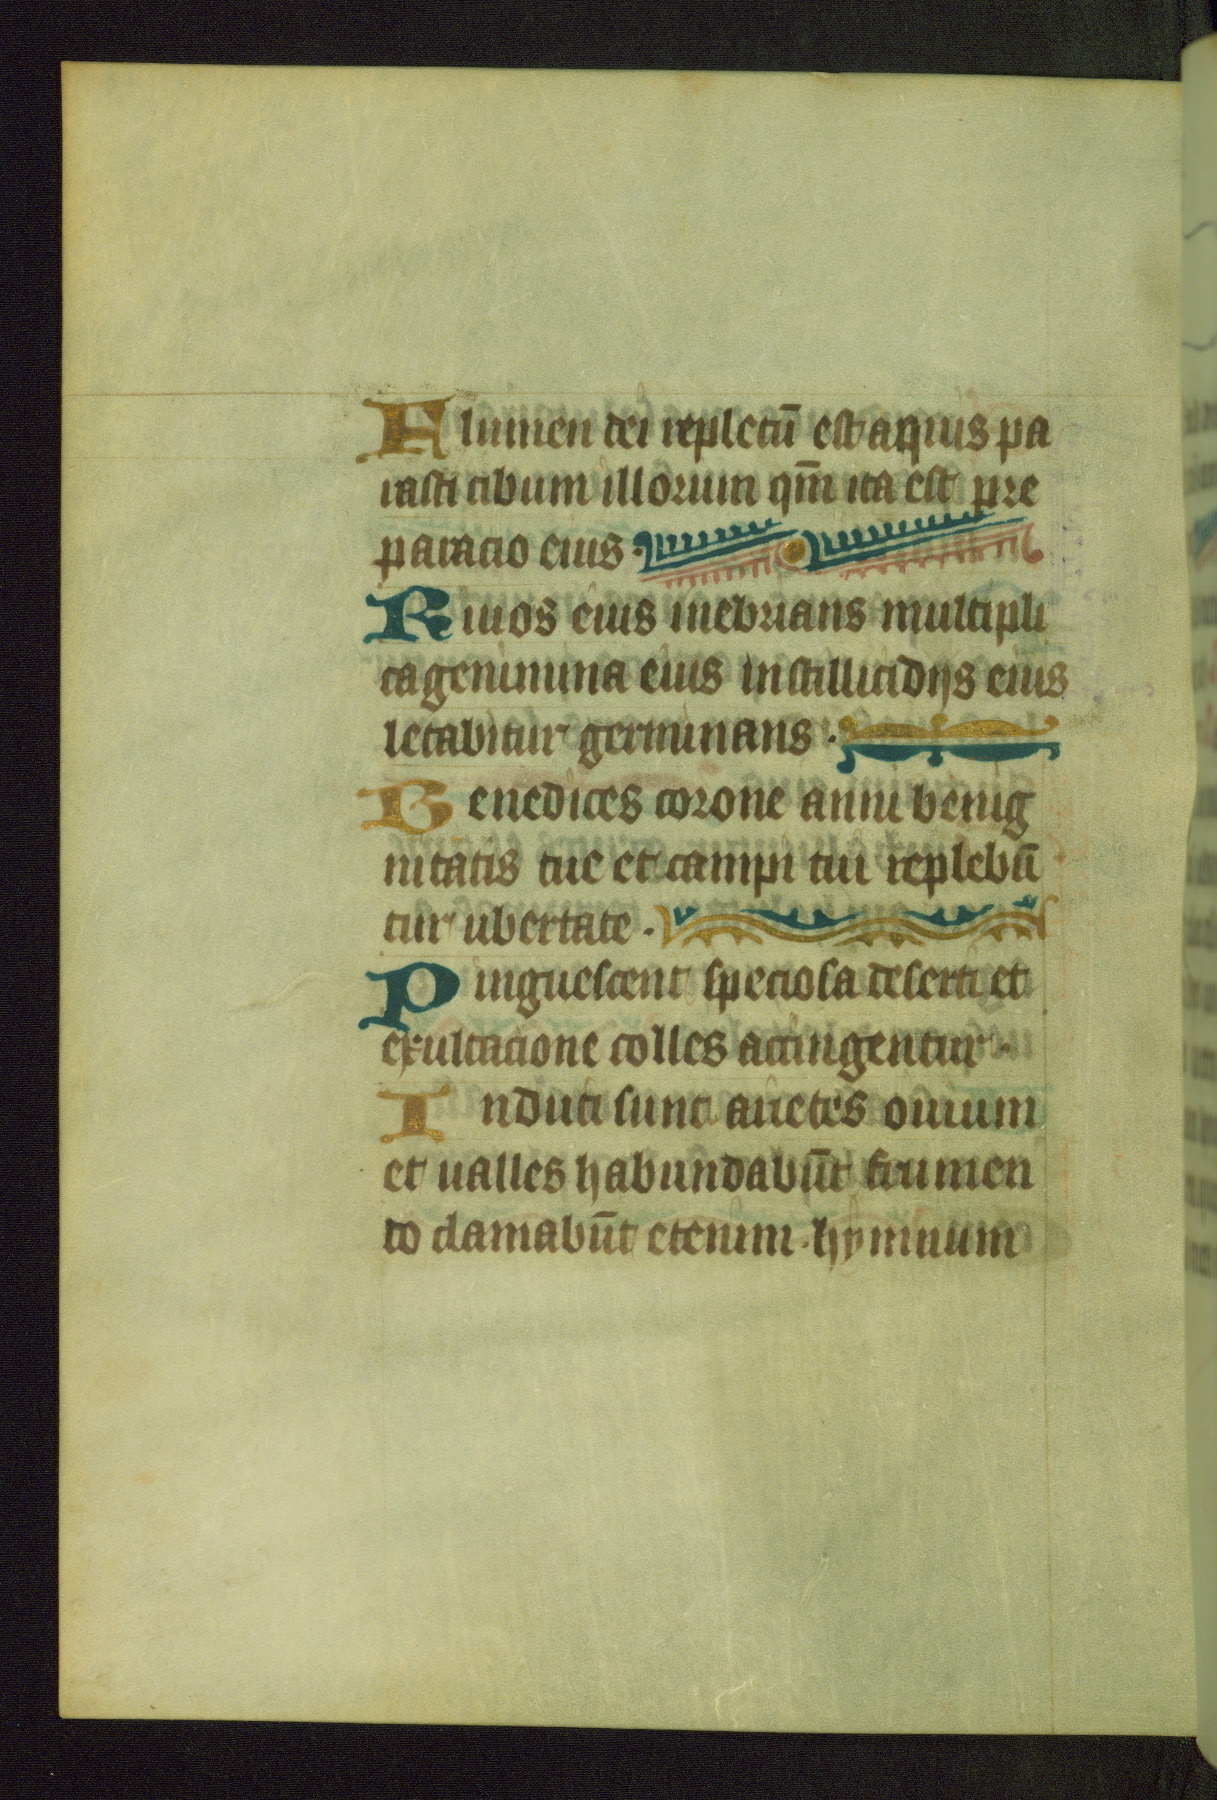 Flumen dei repletū est aquis pa
rasti cibum illorum qm̄ ita est pre
paracio eius.
Riuos eius inebrians multipli
ca genimina eius in stillicidijs eius
letabitur germinans.
Benedices corone anni benig
nitatis tue et campi tui replebū
tur ubertate.
Pinguescent speciosa deserti et
exultacione colles accingentur.
Induti sunt arietes ouium
et ualles habundabūt frumen
to clamabūt etenim hymnum